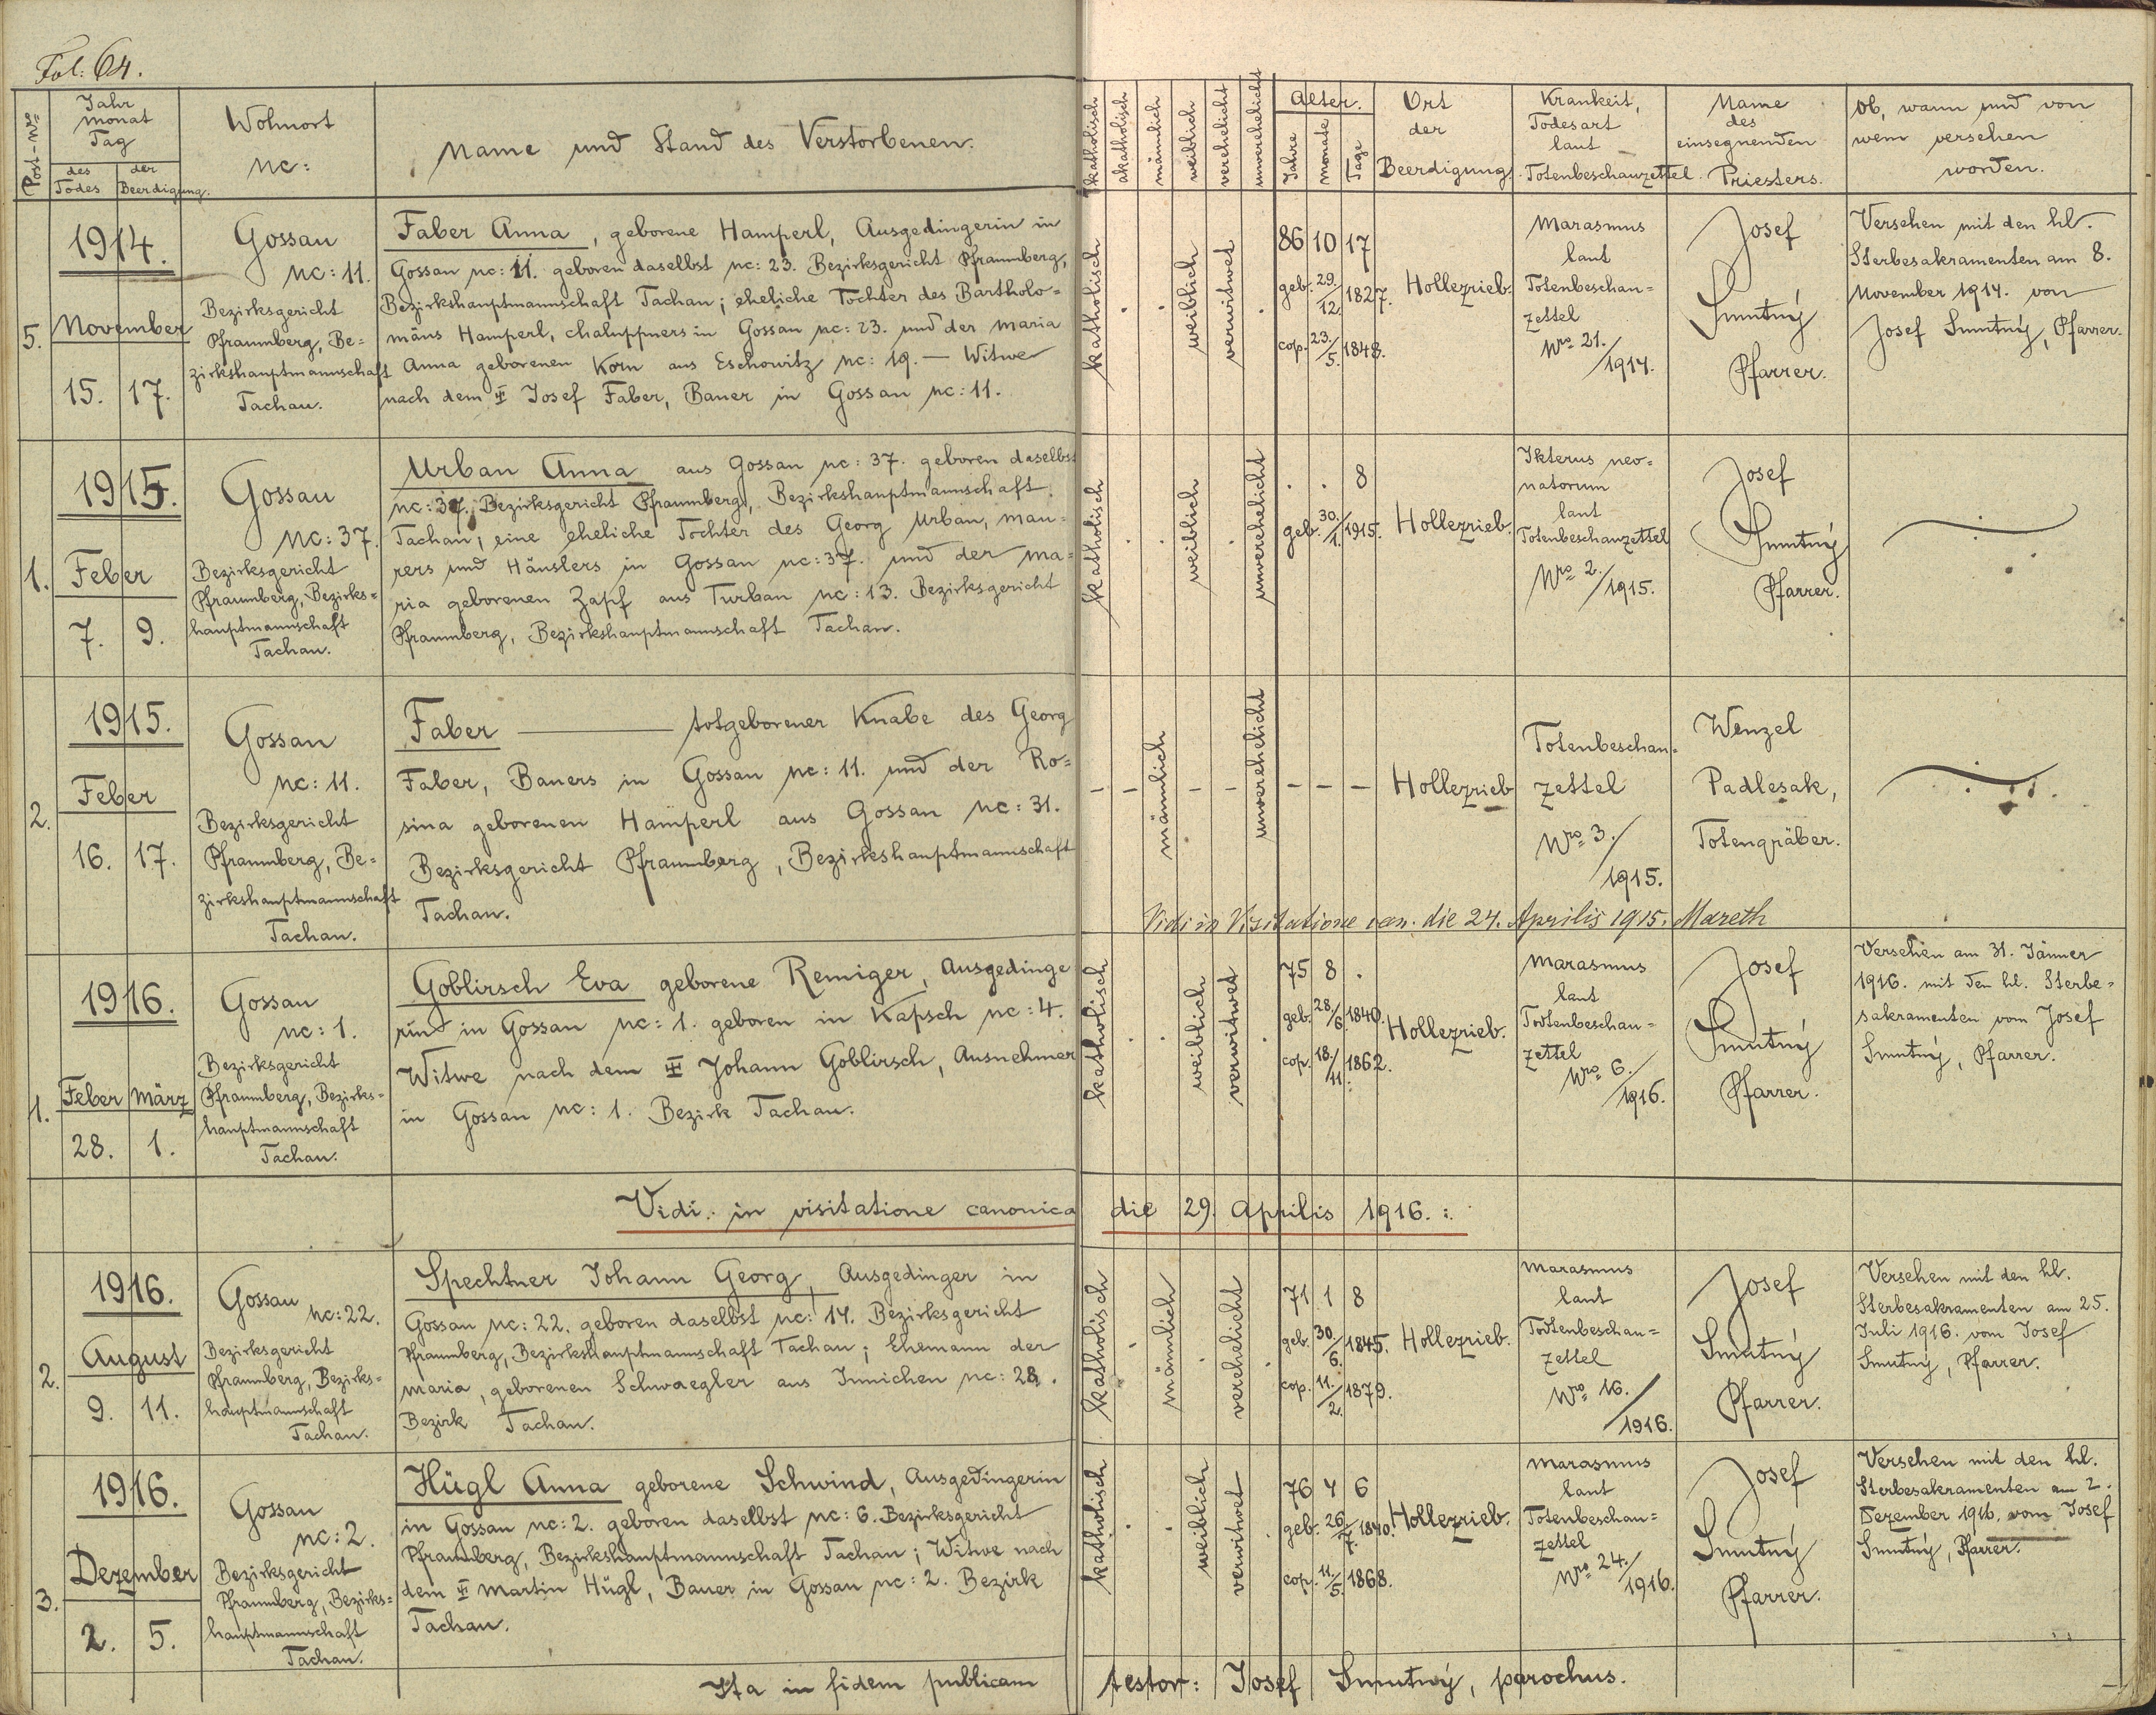 Fol: 64.
Post-Nro
Jahr
Monat
Tag
des
Todes
der
Beerdigung.
Wohnort
Nc:
Name und Stand des Verstorbenen.
katholisch
akatholisch
männlich
weiblich
verehelicht
unverehelicht
Alter.
Jahre
Monate
Tage
Ort
der
Beerdigung.
Krankeit,
Todesart
laut
Totenbeschauzettel.
Name
des
einsegnenden
Priesters.
Ob, wann und von
wem versehen
worden.
5.
1914.
November
15. 17.
Gossau
Nc: 11.
Bezirksgericht
Pfraumberg, Be=
zirkshauptmannschaft
Tachau.
Faber Anna, geborene Hamperl, Ausgedingerin in
Gossau Nc: 11. geboren daselbst Nc: 23. Bezirksgericht Pfraumberg,
Bezirkshauptmannschaft Tachau; eheliche Tochter des Bartholo=
mäus Hamperl, Chaluppners in Gossau Nc: 23. und der Maria
Anna geborenen Korn aus Eschowitz Nc: 19. — Witwe
nach dem ‡ Josef Faber, Bauer in Gossau Nc: 11.
katholisch
weiblich
verwitwet
86 10 17
geb. 29./12. 1827.
cop. 23./5. 1848.
Hollezrieb.
Marasmus
laut
Totenbeschau=
zettel
Nro 21./1914.
Josef
Smutný
Pfarrer.
Versehen mit den hl.
Sterbesakramenten am 8.
November 1914. von
Josef Smutný, Pfarrer.
1.
1915.
Feber
7. 9.
Gossau
Nc: 37.
Bezirksgericht
Pfraumberg, Bezirks=
hauptmannschaft
Tachau.
Urban Anna aus Gossau Nc: 37. geboren daselbst
Nc: 37. Bezirksgericht Pfraumberg, Bezirkshauptmannschaft
Tachau, eine eheliche Tochter des Georg Urban, Mau=
rers und Häuslers in Gossau Nc: 37. und der Ma=
ria geborenen Zapf aus Turban Nc: 13. Bezirksgericht
Pfraumberg, Bezirkshauptmannschaft Tachau.
katholisch
weiblich
unverehelicht
. . 8
geb. 30./1. 1915.
Hollezrieb.
Ikterus neo=
natorum
laut
Totenbeschauzettel
Nro 2./1915.
Josef
Smutný
Pfarrer.
2.
1915.
Feber
16. 17.
Gossau
Nc: 11.
Bezirksgericht
Pfraumberg, Be=
zirkshauptmannschaft
Tachau.
Faber — totgeborener Knabe des Georg
Faber, Bauers in Gossau Nc: 11. und der Ro=
sina geborenen Hamperl aus Gossau Nc: 31.
Bezirksgericht Pfraumberg, Bezirkshauptmannschaft
Tachau.
– – männlich – – unverehelicht – – –
Hollezrieb
Totenbeschau=
zettel
Nro 3./
1915.
Wenzel
Padlesak,
Totengräber.
Vidi in Visitatione can. die 24. Aprilis 1915. Mareth
1.
1916.
Feber März
28. 1.
Gossau
Nc: 1.
Bezirksgericht
Pfraumberg, Bezirks=
hauptmannschaft
Tachau.
Goblirsch Eva geborene Remiger, Ausgedinge
rin in Gossau Nc: 1. geboren in Kapsch Nc: 4.
Witwe nach dem ‡ Johann Goblirsch, Ausnehmer
in Gossau Nc: 1. Bezirk Tachau.
katholisch
weiblich
verwitwet
75 8 .
geb. 28/6 1840.
cop. 18./11. 1862.
Hollezrieb.
Marasmus
laut
Totenbeschau=
zettel
Nro 6./
1916.
Josef
Smutný
Pfarrer.
Versehen am 31. Jänner
1916. mit den hl. Sterbe=
sakramenten vom Josef
Smutný, Pfarrer.
Vidi: in visitatione canonica die 29. Aprilis 1916.:.
2.
1916.
August
9. 11.
Gossau
Nc: 22.
Bezirksgericht
Pfraumberg, Bezirks=
hauptmannschaft
Tachau.
Spechtner Johann Georg, Ausgedinger in
Gossau Nc: 22. geboren daselbst Nc: 14. Bezirksgericht
Pfraumberg, Bezirkshauptmannschaft Tachau; Ehemann der
Maria, geborenen Schwaegler aus Innichen Nc: 28.
Bezirk Tachau.
katholisch
männlich
verehelicht
71 1 8
geb. 30./6. 1845.
cop. 11./2. 1879.
Hollezrieb.
Marasmus
laut
Totenbeschau=
zettel
Nro 16./
1916.
Josef
Smutný
Pfarrer.
Versehen mit den hl.
Sterbesakramenten am 25.
Juli 1916. vom Josef
Smutný, Pfarrer.
3.
1916.
Dezember
2. 5.
Gossau
Nc: 2.
Bezirksgericht
Pfraumberg, Bezirks=
hauptmannschaft
Tachau.
Hügl Anna geborene Schwind, Ausgedingerin
in Gossau Nc: 2. geboren daselbst Nc: 6. Bezirksgericht
Pfraumberg, Bezirkshauptmannschaft Tachau; Witwe nach
dem ‡ Martin Hügl, Bauer in Gossau Nc: 2. Bezirk
Tachau.
katholisch
weiblich
verwitwet
76 4 6
geb. 26./7. 1840.
cop. 11./5. 1868.
Hollezrieb.
Marasmus
laut
Totenbeschau=
zettel
Nro 24./
1916.
Josef
Smutný
Pfarrer.
Versehen mit den hl.
Sterbesakramenten am 2.
Dezember 1916. vom Josef
Smutný, Pfarrer.
Ita in fidem publicam testor: Josef Smutný, parochus.